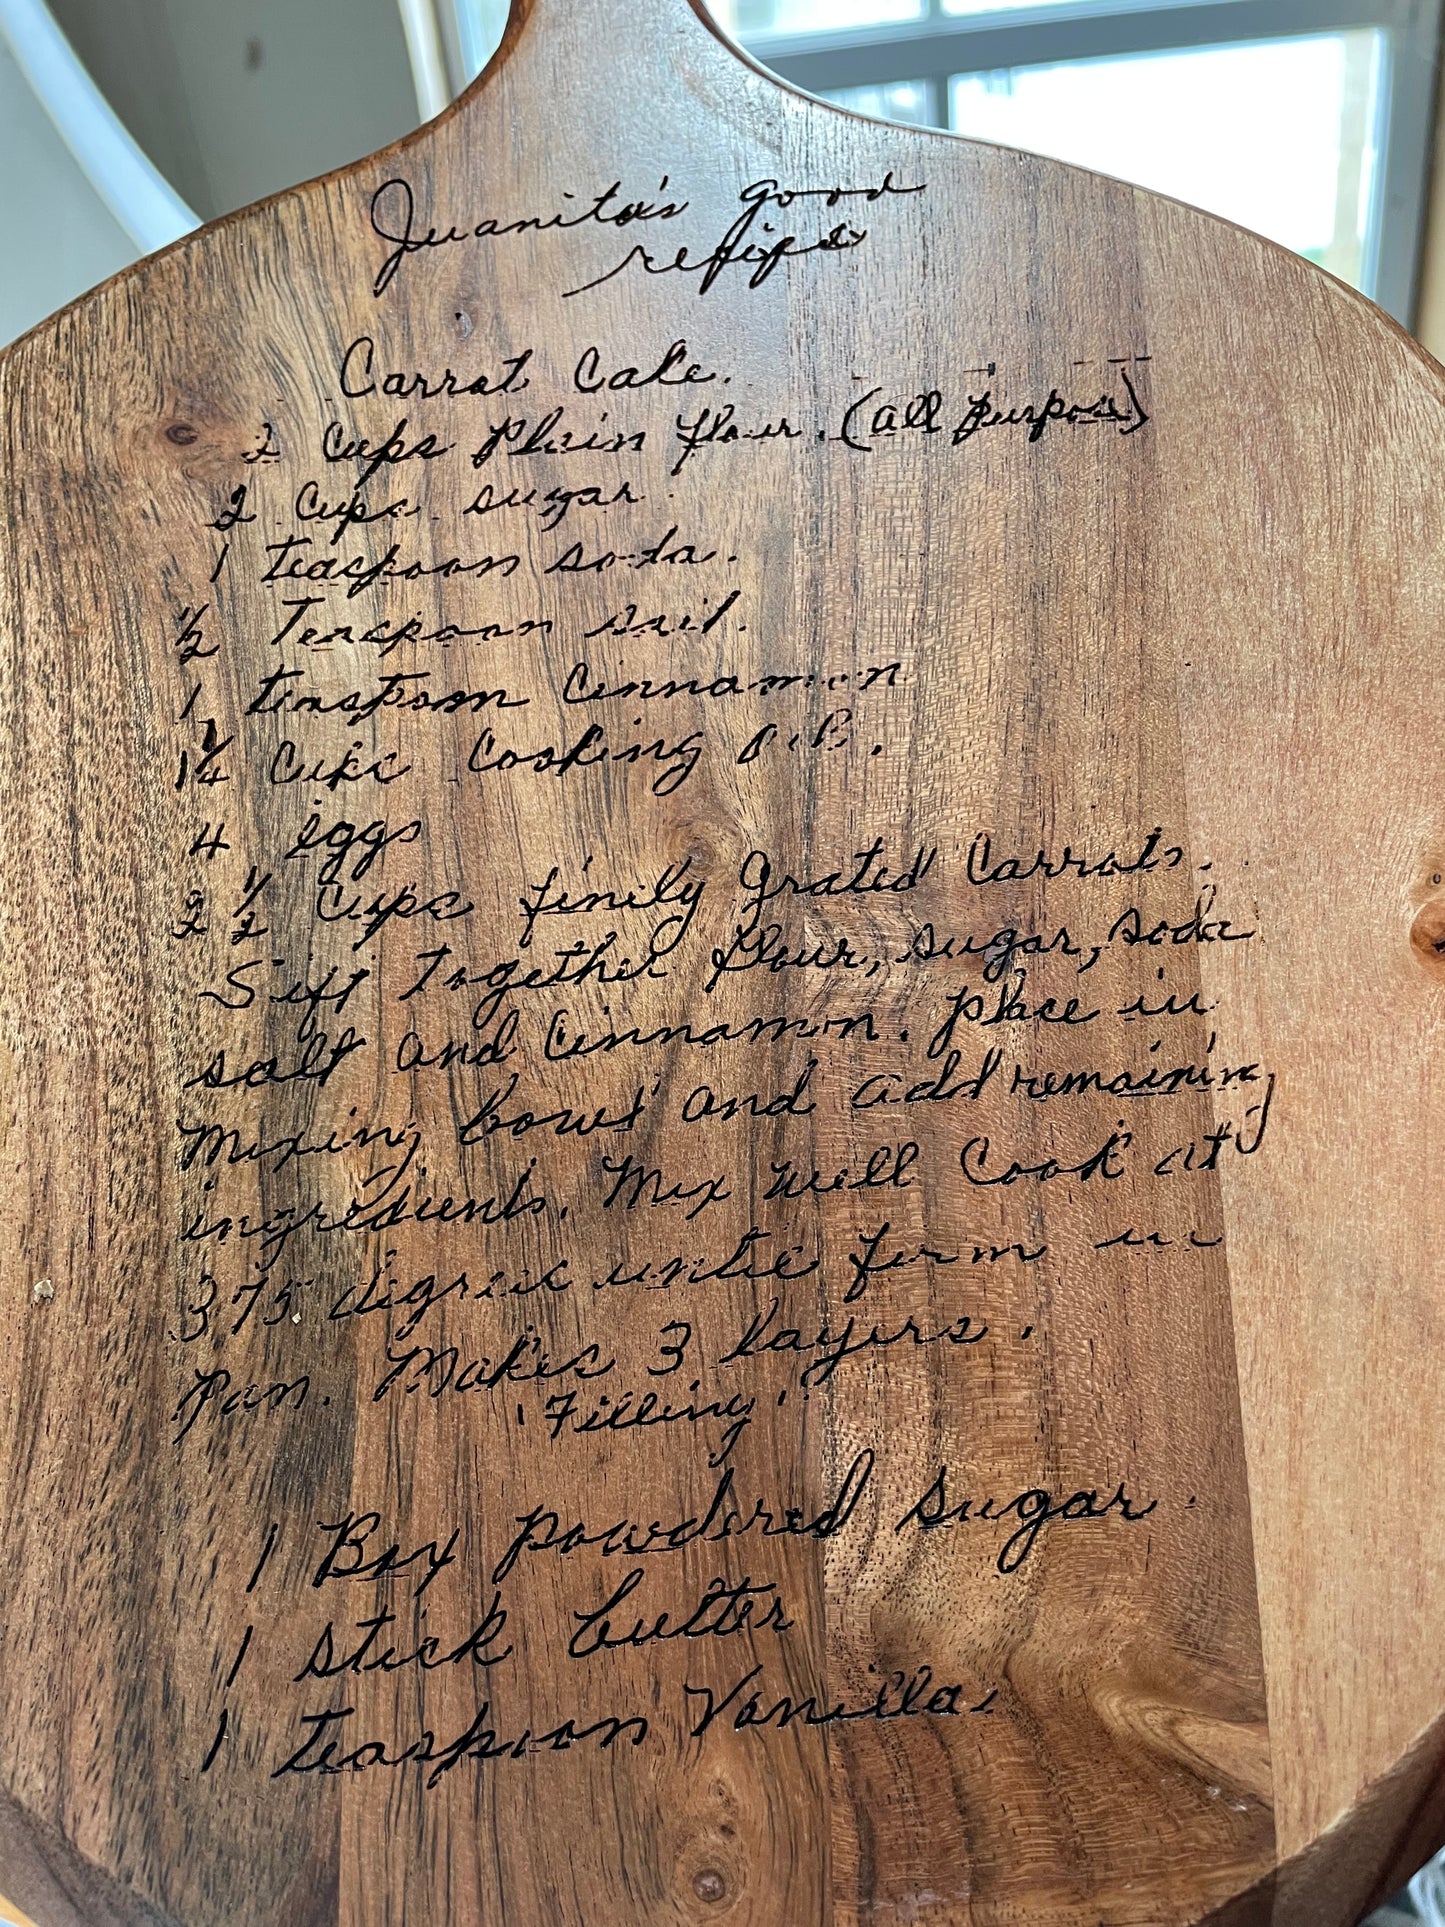 Juanita's good
recipes
Carrot Cake.
2 Cups Plain flour. (all purpose)
2 Cups sugar.
1 teaspoon soda.
1/2 Teaspoon salt.
1 teaspoon Cinnamon
1 1/4 Cups Cooking oil.
4 eggs
2 1/2 Cups finely grated Carrots.
Sift together flour, sugar, soda
salt and Cinnamon. place in
Mixing bowl and add remaining
ingredients. Mix well Cook at
375 degree until firm in
Pan. Makes 3 layers.
'Filling'
1 Box powdered sugar.
1 stick butter
1 teaspoon Vanilla.